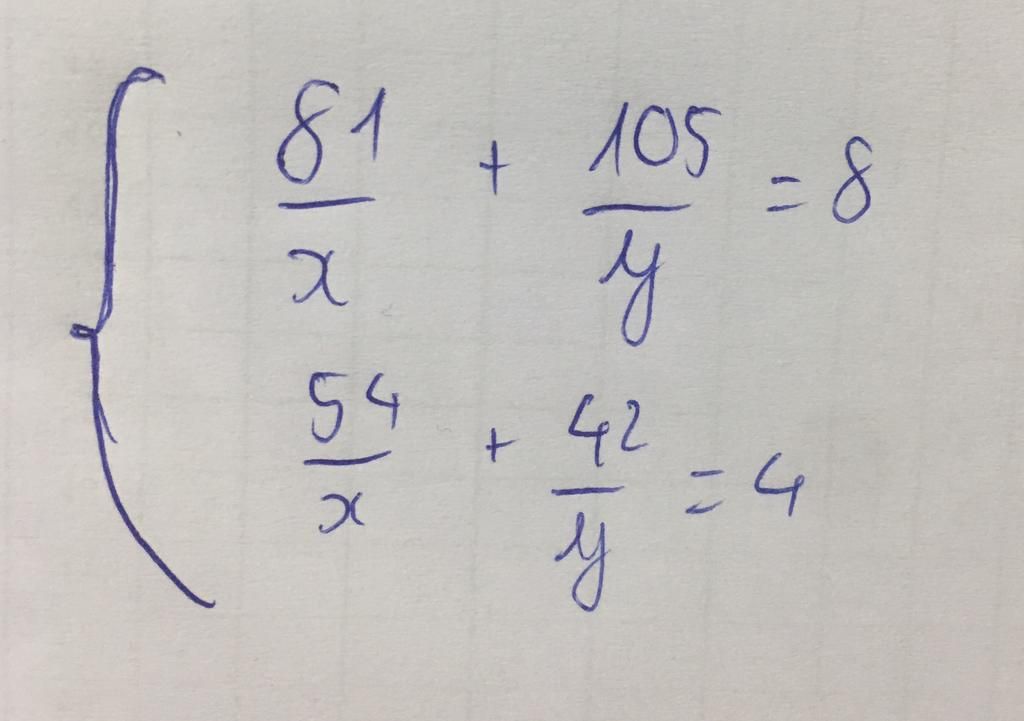 81/x + 105/y = 8
54/x + 42/y = 4